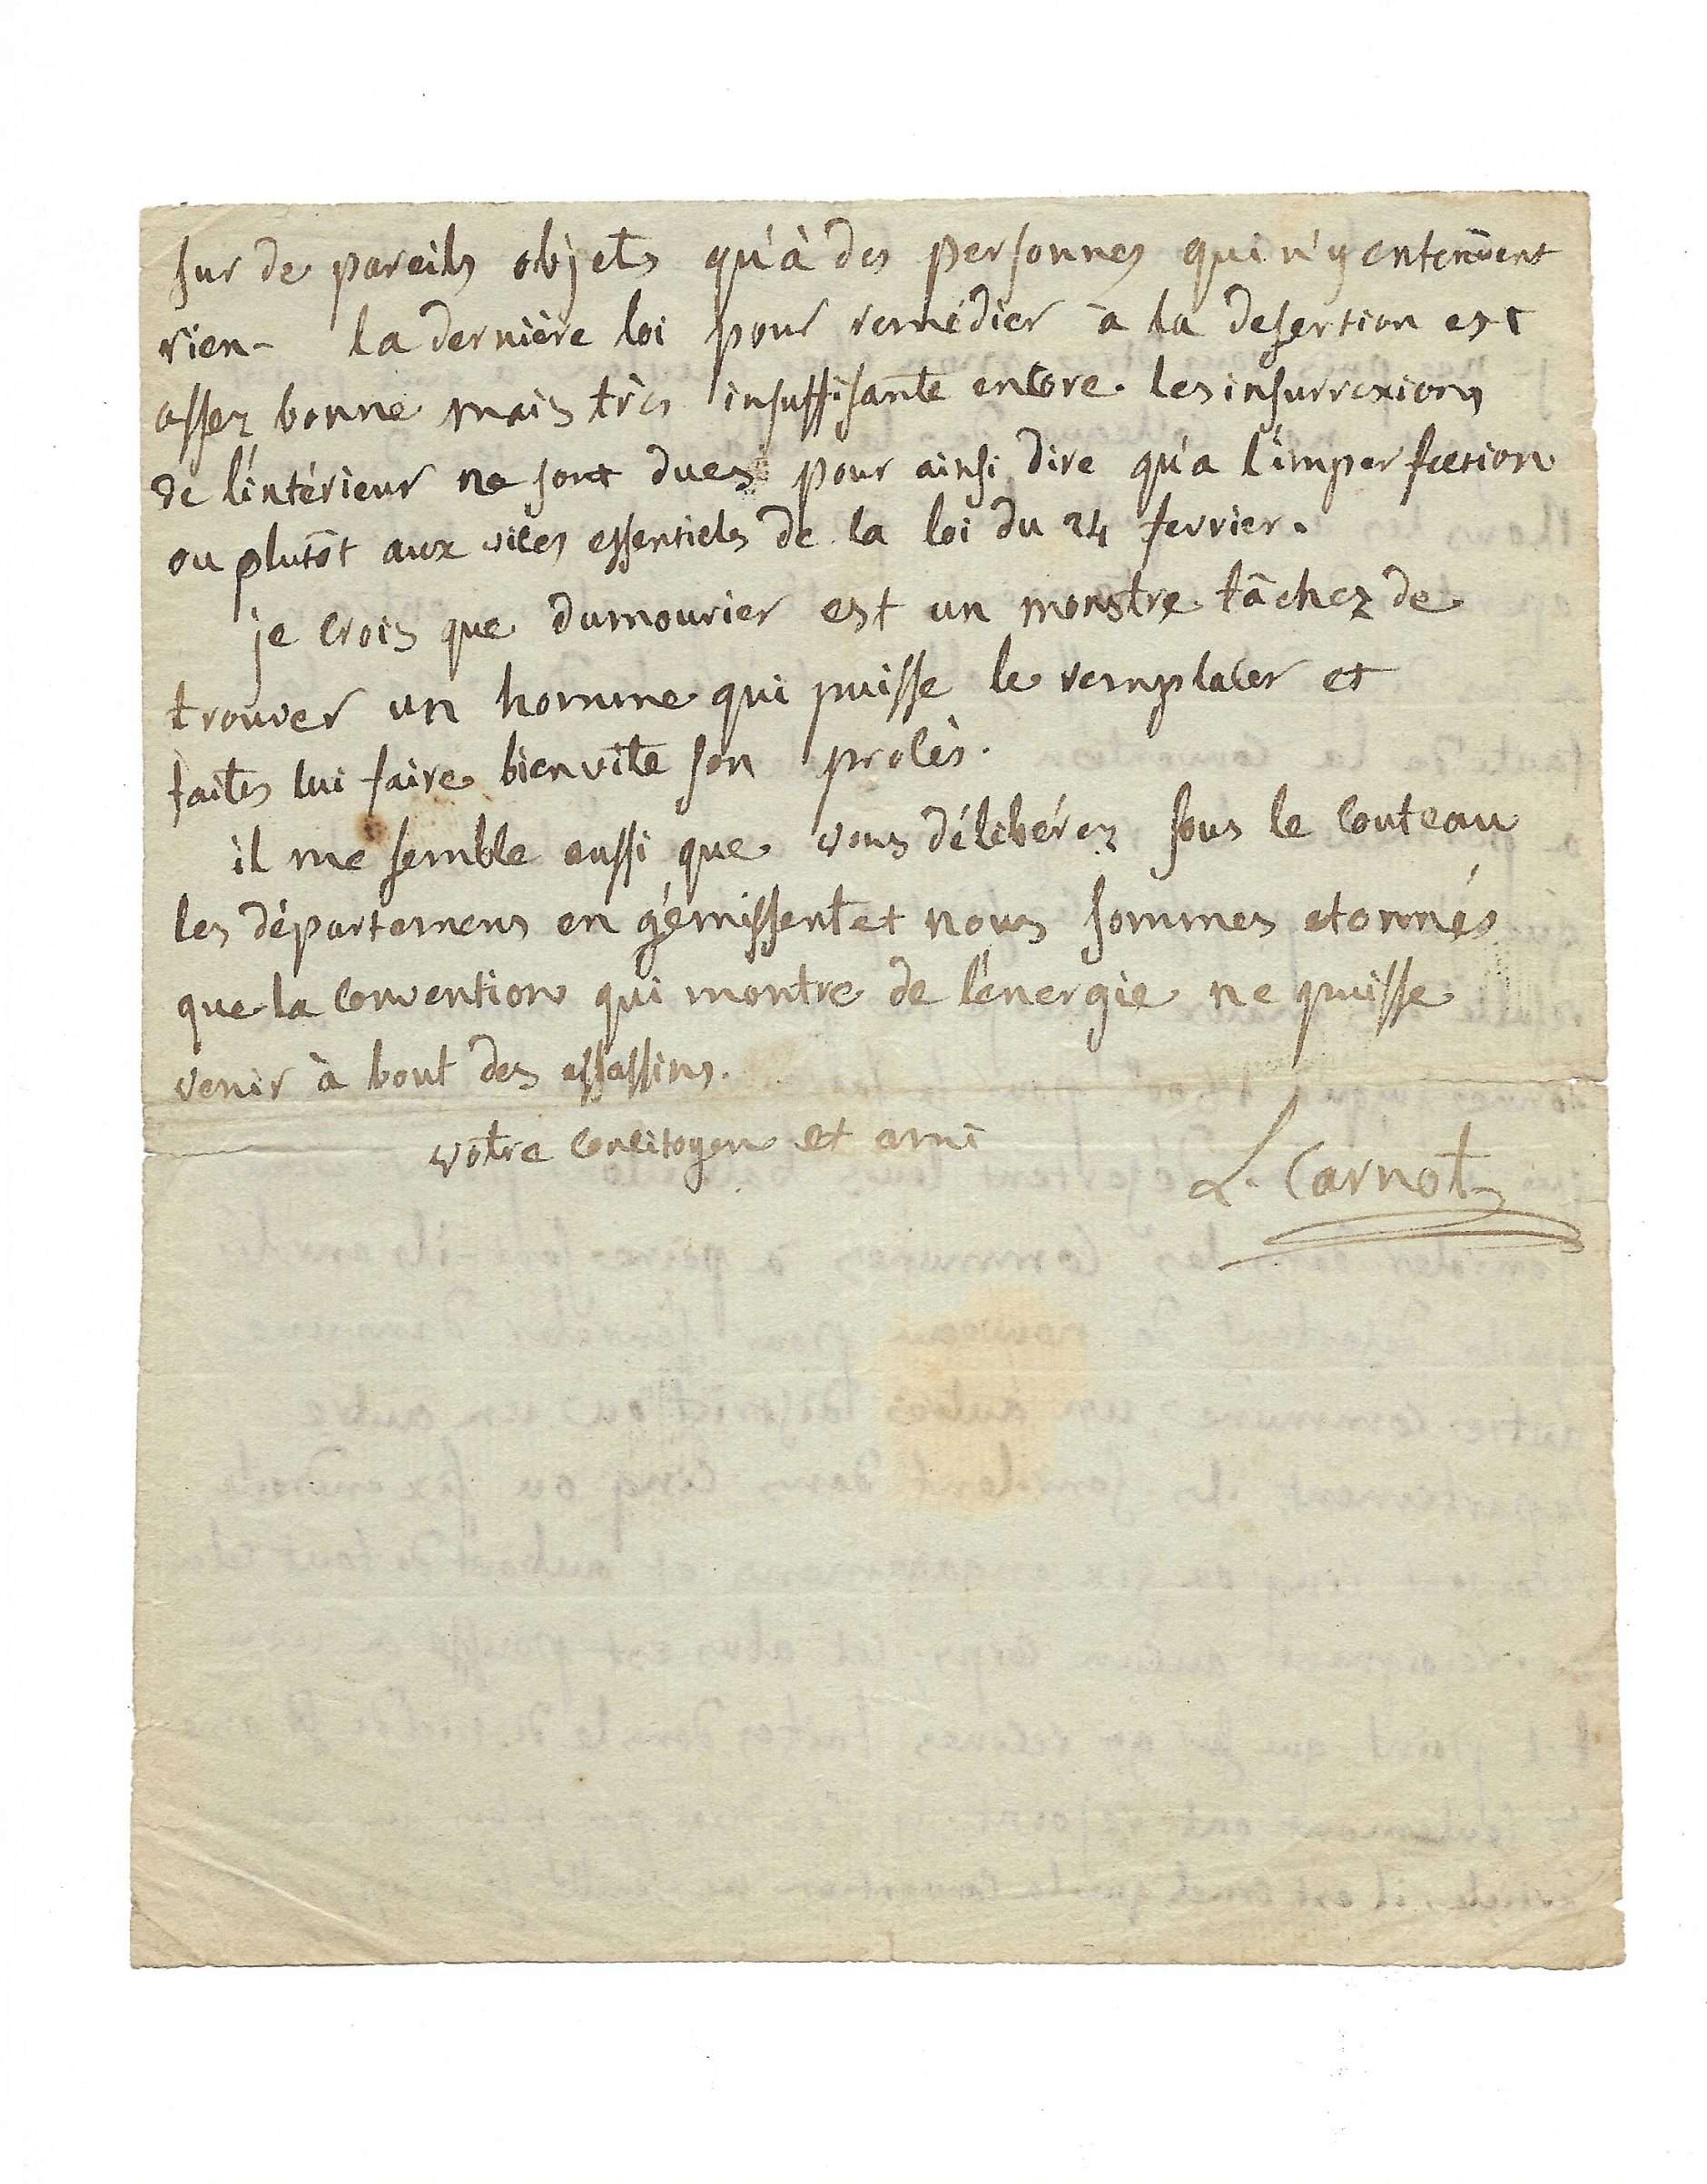 sur de pareils objets qu'à des personnes qui n'y entendent
rien - la dernière loi pour remédier à la desertion est
assez bonne mais très insuffisante encore. les insurrexions
de l'intérieur ne sont dues pour ainsi dire qu'a l'imperfection
ou plutôt aux vices essentiels de la loi du 24 fevrier.
je crois que dumourier est un monstre tâchez de
trouver un homme qui puisse le remplacer et
faites lui faire bien vite son procès.
il me semble aussi que vous délibérez sous le couteau
les départemens en gémissent et nous sommes etonnés
que la convention qui montre de l'energie ne puisse
venir à bout des assassins.
votre concitoyen et ami
L. Carnot